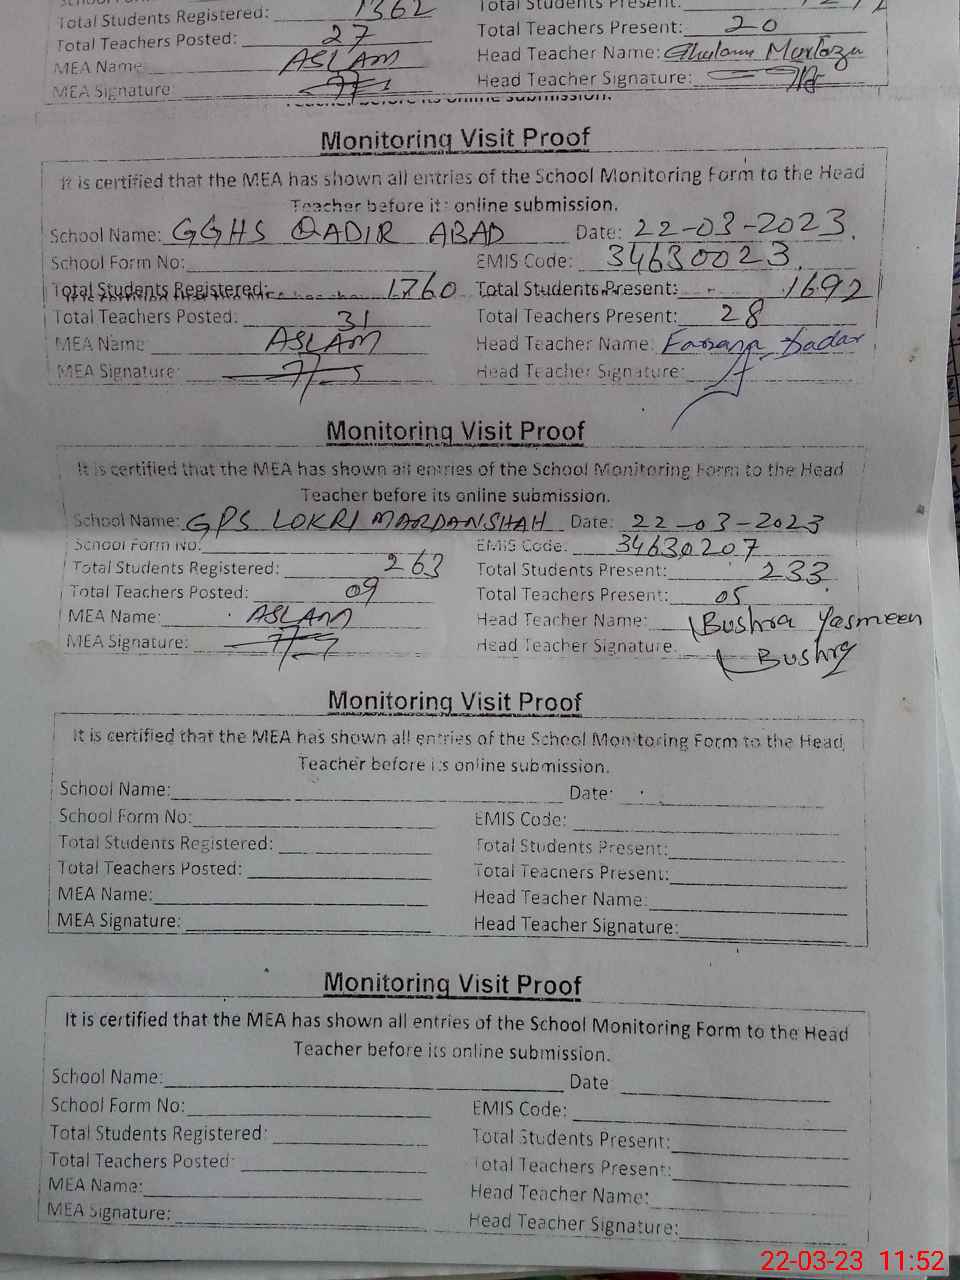 Total Students Registered: 1362 Total Students Present:
Total Teachers Posted: 27 Total Teachers Present: 20
MEA Name ASLAM Head Teacher Name: Ghulam Murtaza
MEA Signature: Head Teacher Signature:
Teacher before its online submission.
Monitoring Visit Proof
It is certified that the MEA has shown all entries of the School Monitoring Form to the Head
Teacher before its online submission.
School Name: GGHS QADIR ABAD Date: 22-03-2023.
School Form No: EMIS Code: 34630023.
Total Students Registered: 1760 Total Students Present: 1692
Total Teachers Posted: 31 Total Teachers Present: 28
MEA Name ASLAM Head Teacher Name:
MEA Signature: Head Teacher Signature:
Monitoring Visit Proof
It is certified that the MEA has shown all entries of the School Monitoring Form to the Head
Teacher before its online submission.
School Name: GPS LOKRI MARDANSHAH Date: 22-03-2023
School Form No: EMIS Code: 34630207
Total Students Registered: 263 Total Students Present: 233
Total Teachers Posted: 09 Total Teachers Present: 05
MEA Name: ASLAM Head Teacher Name: Bushra Yasmeen
MEA Signature: Head Teacher Signature. Bushra
Monitoring Visit Proof
It is certified that the MEA has shown all entries of the School Monitoring Form to the Head
Teacher before its online submission.
School Name: Date:
School Form No: EMIS Code:
Total Students Registered: Total Students Present:
Total Teachers Posted: Total Teachers Present:
MEA Name: Head Teacher Name:
MEA Signature: Head Teacher Signature:
Monitoring Visit Proof
It is certified that the MEA has shown all entries of the School Monitoring Form to the Head
Teacher before its online submission.
School Name: Date:
School Form No: EMIS Code:
Total Students Registered: Total Students Present:
Total Teachers Posted: Total Teachers Present:
MEA Name: Head Teacher Name:
MEA Signature: Head Teacher Signature:
22-03-23 11:52